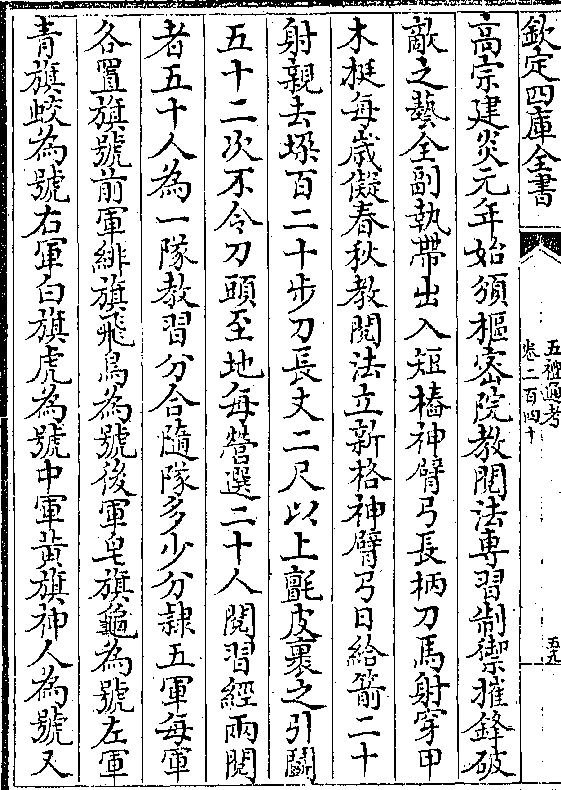 欽定四庫全書
五禮通考
卷二百四十
五九
高宗建炎元年始頒樞宻院教閱法專習制禦摧鋒破
敵之藝全副執帶出入短樁神臂弓長柄刀馬射穿甲
木挺每歲儗春秋教閱法立新格神臂弓日給箭二十
射親去垜百二十步刀長丈二尺以上氈皮裹之引鬭
五十二次不令刀頭至地每營選二十人閱習經兩閱
者五十人為一隊教習分合隨隊多少分隷五軍每軍
各置旗號前軍緋旗飛鳥為號後軍皂旗龜為號左軍
青旗蛟為號右軍白旗虎為號中軍黄旗神人為號又